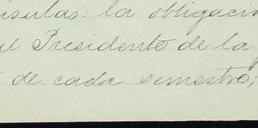 la obligació
el Presidente de la
de cada semestre;